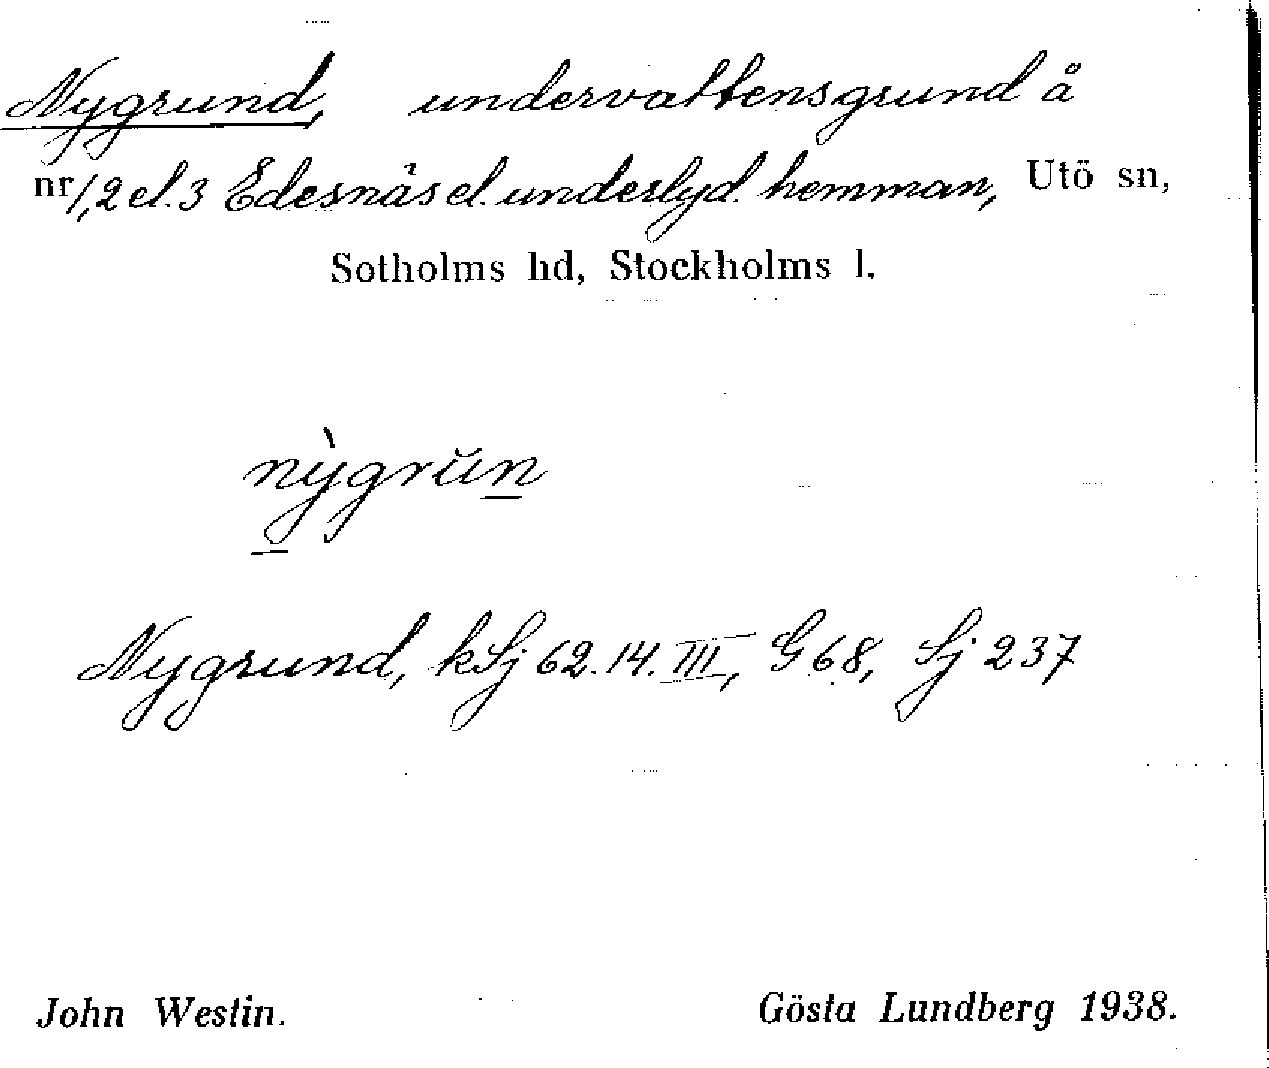 Nygrund, undervattensgrund å
nr 1, 2 el. 3 Edesnäs el. underlyd. hemman, Utö sn,
Sotholms hd, Stockholms l.
nỳgrŭn
Nygrund, kSj 62.14.III, G 68, Sj 237
John Westin. Gösta Lundberg 1938.